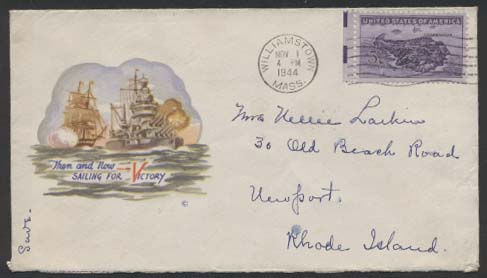 UNITED STATES OF AMERICA
WILLIAMSTOWN
NOV 1
4 PM
1944
MASS.
Mrs Nellie Larkin
30 Old Beach Road
Newport.
Rhode Island.
Then and Now
SAILING FOR VICTORY
©
Save.